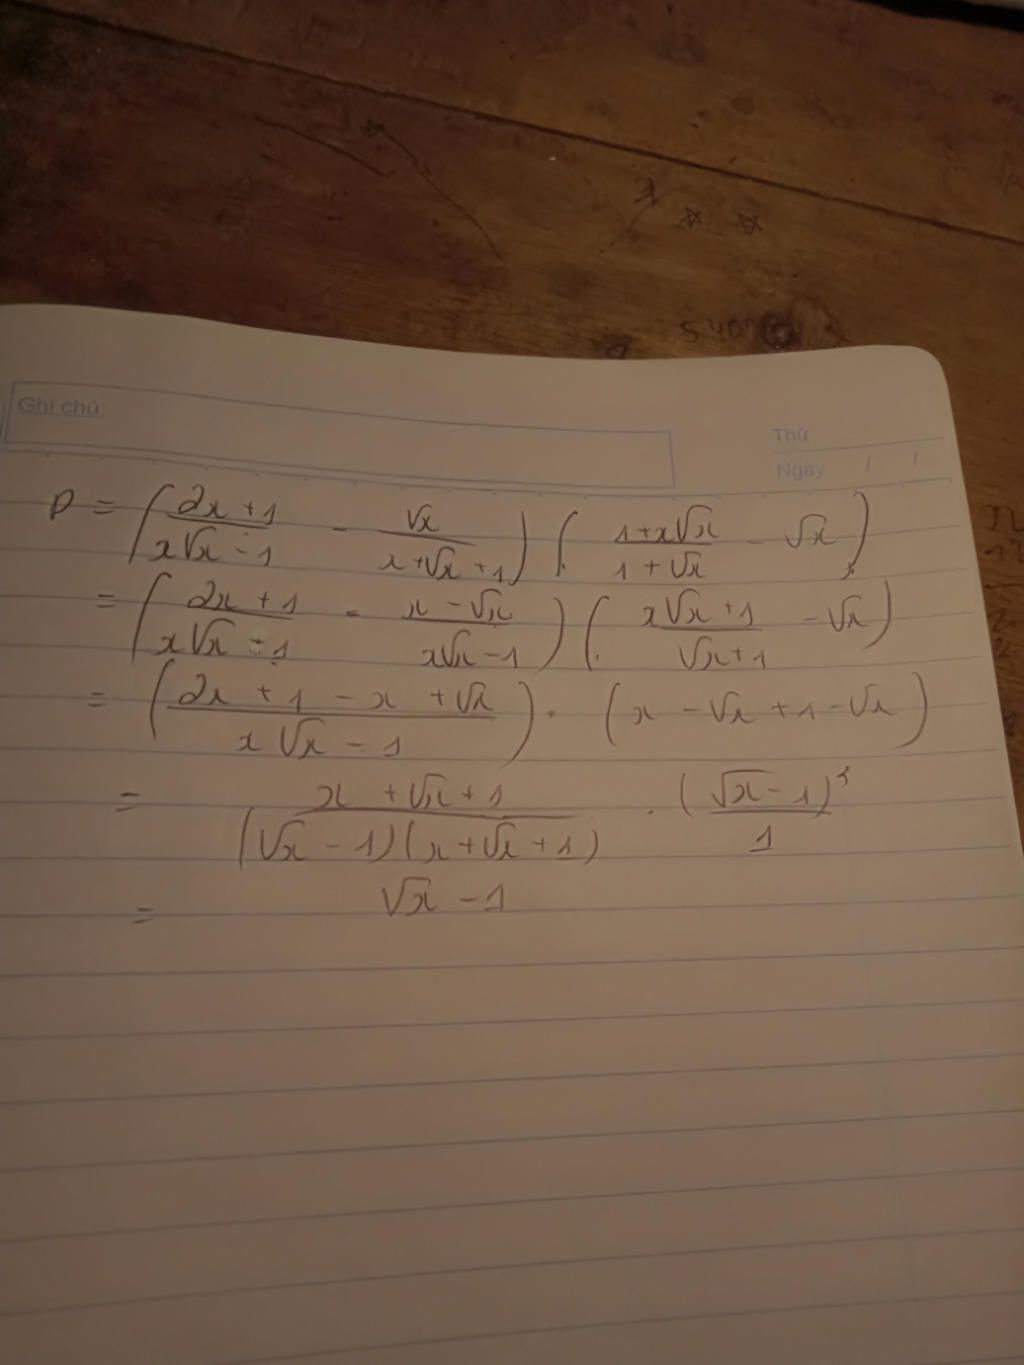 5 40
Ghi chú:
Thứ
Ngày / /
P = (2x + 1 / x√x - 1 - √x / x + √x + 1) . (1 + x√x / 1 + √x - √x)
= (2x + 1 / x√x - 1 - x - √x / x√x - 1) . (x√x + 1 / √x + 1 - √x)
= (2x + 1 - x + √x / x√x - 1) . (x - √x + 1 - √x)
= x + √x + 1 / (√x - 1)(x + √x + 1) . (√x - 1)² / 1
= √x - 1